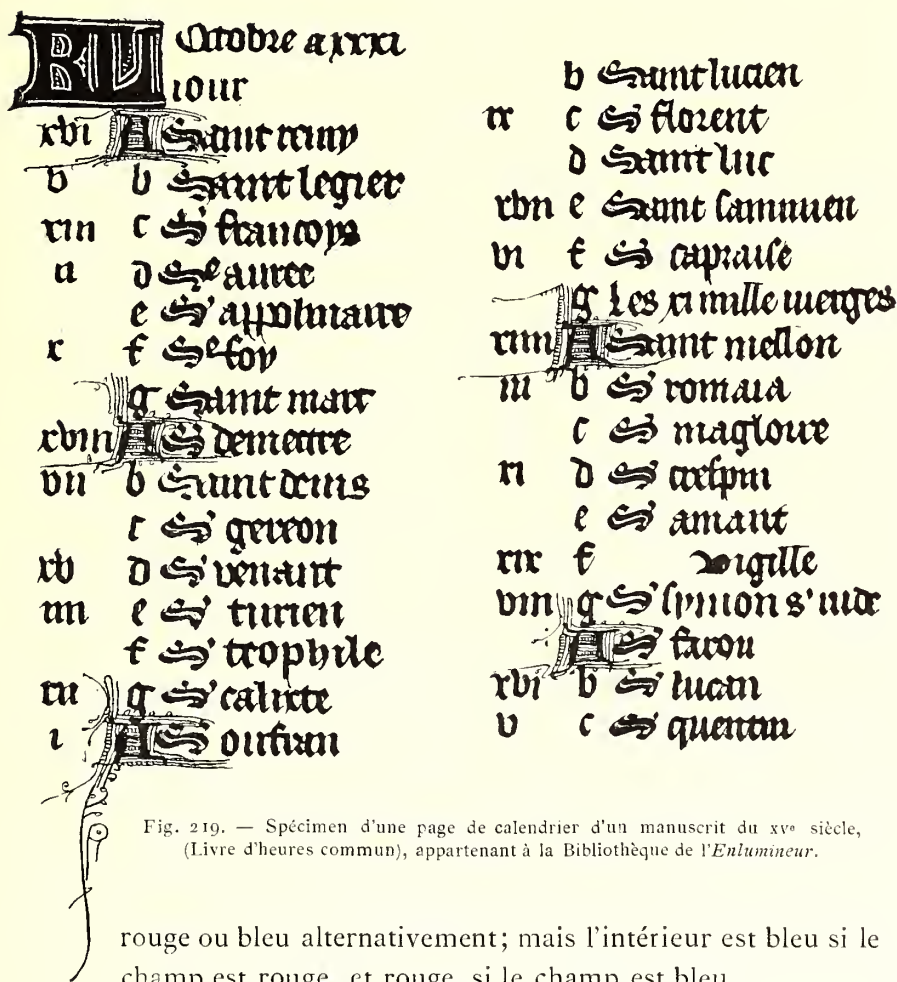 Octobre a xxxi
iour
xvi A Saint remy
v b Saint legier
xiii c S' francoys
ii d Se auree
e S' appolinaire
x f Se foy
g Saint marc
xviii A S' demettre
vii b Saint denis
c S' gereon
xv d S' venant
iiii e S' turien
f S' trophile
xii g S' calixte
i A S'
b Saint lucien
ix c S' florent
d Saint luc
xvii e Saint
vi f S' capraise
g Les xi mille vierges
xiiii A Saint mellon
iii b S'
c S' magloire
xi d S' crespin
e S' amant
xix f Vigille
viii g S' symon s' iude
A S'
xvi b S' lucan
v c S' quentin
Fig. 219. — Spécimen d'une page de calendrier d'un manuscrit du XVe siècle,
(Livre d'heures commun), appartenant à la Bibliothèque de l'Enlumineur.
rouge ou bleu alternativement; mais l'intérieur est bleu si le
champ est rouge, et rouge, si le champ est bleu